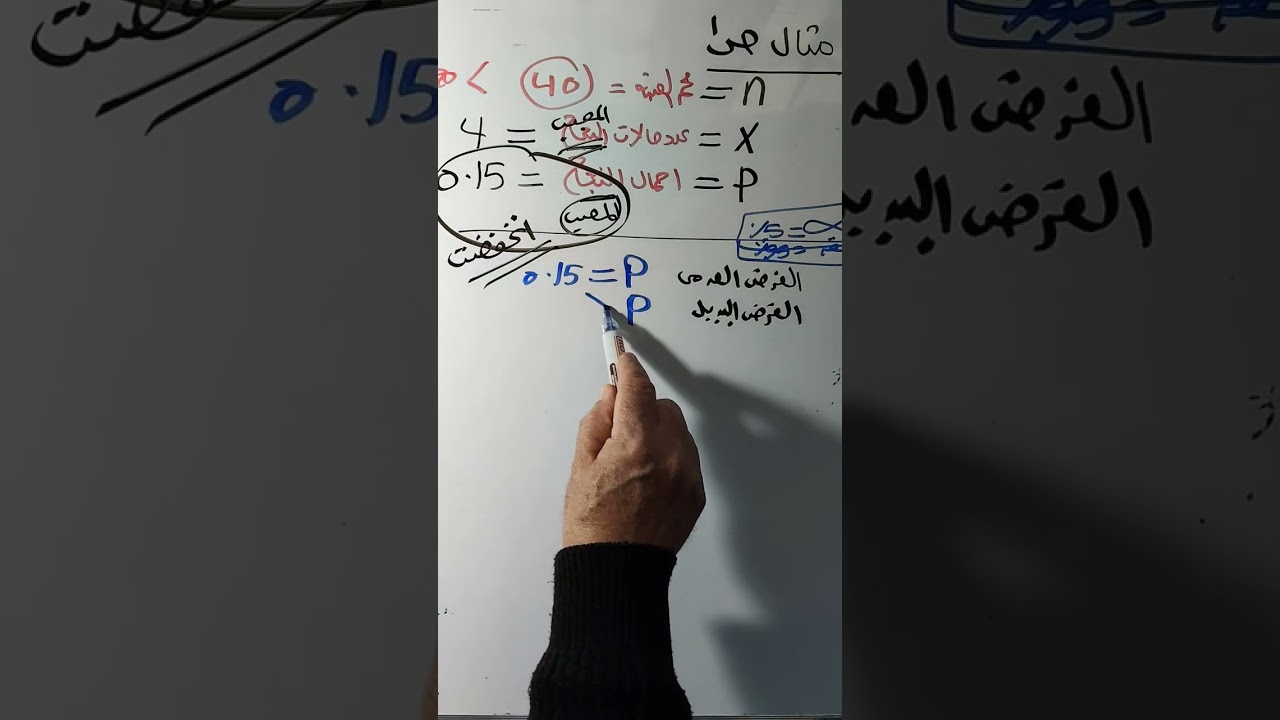 مثال
n = حجم العينة = 40 >
x = عدد حالات النجاح المعيب = 4
P = احتمال النجاح = 0.15
المعيب
انخفضت
α = 5%
الفرض العدمي P = 0.15
الفرض البديل P